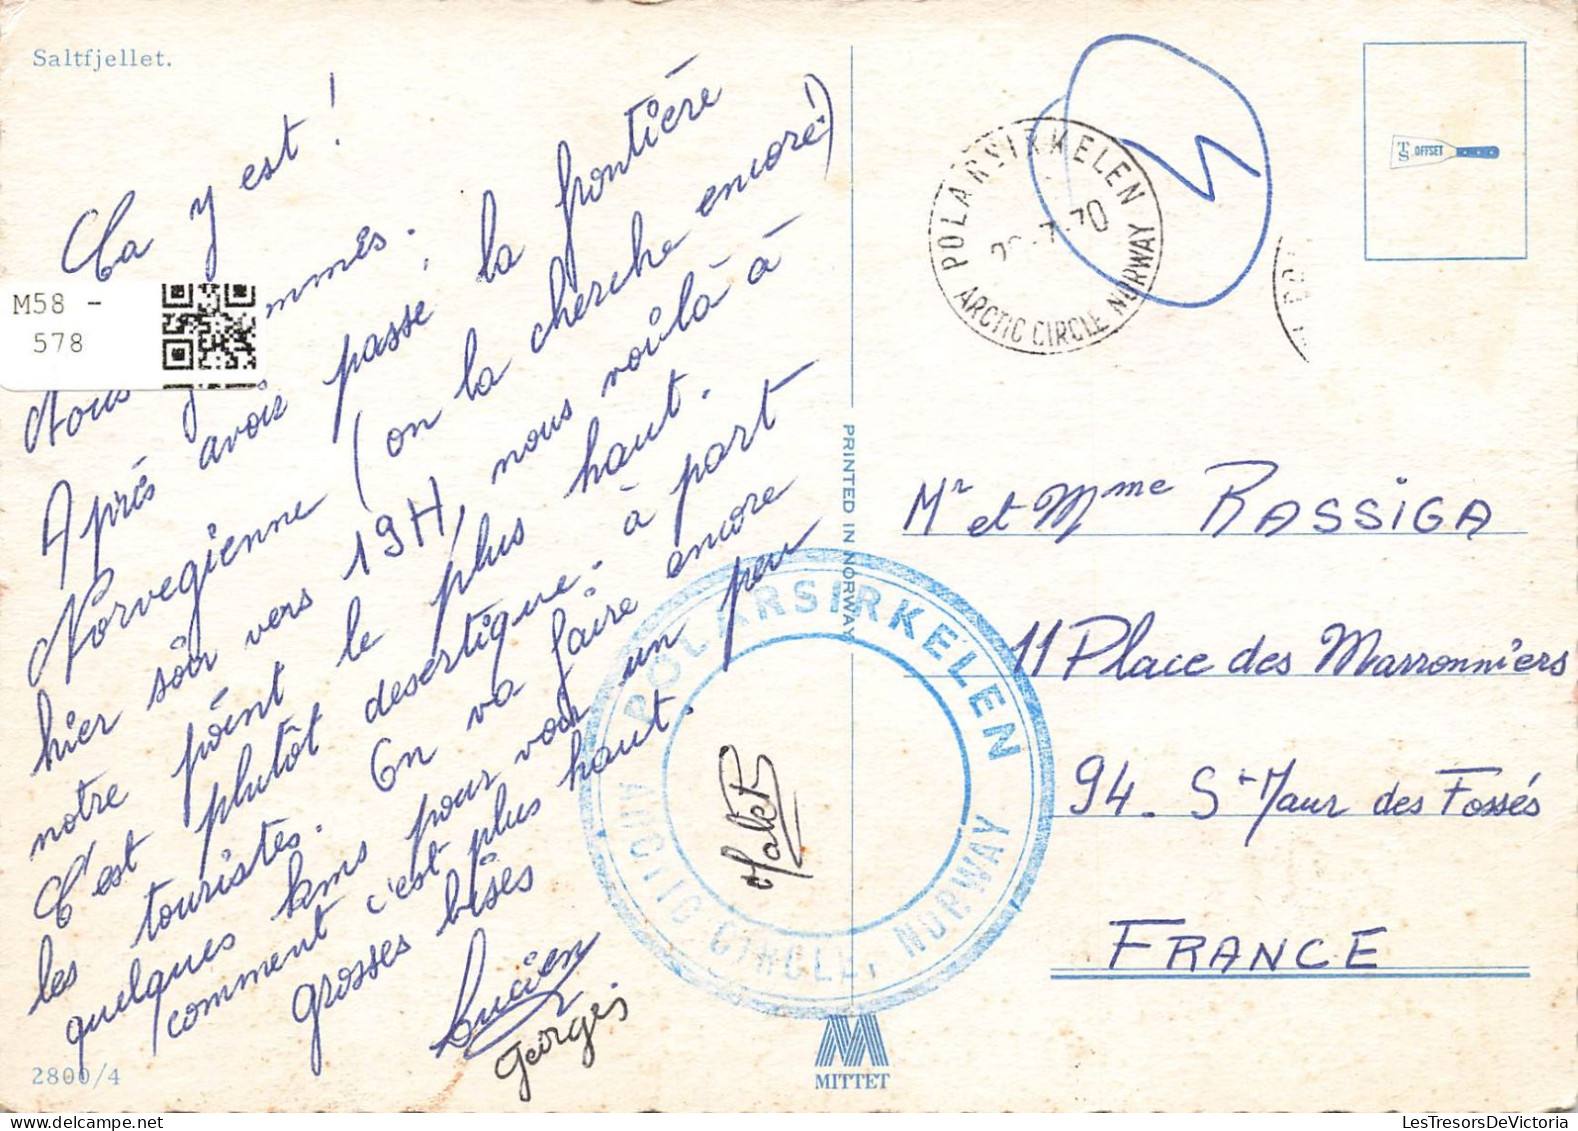 Saltfjellet.
Ca y est !
M58 -
578
Nous y sommes.
Après avoir passé, la frontière
Norvegienne (on la cherche encore!)
hier soir vers 19H, nous voilà à
notre point le plus haut.
C'est plutôt desertique. à part
les touristes. On va faire encore
quelques kms pour voir un peu
comment c'est plus haut.
grosses bises
Lucien
Georges
2800/4
PRINTED IN NORWAY
MITTET
POLARSIRKELEN
7-70
ARCTIC CIRCLE NORWAY
TS OFFSET
Mr et Mme RASSIGA
11 Place des Marronniers
94 - St Maur des Fossés
FRANCE
POLARSIRKELEN
ARCTIC CIRCLE, NORWAY
LesTresorsDeVictoria.com